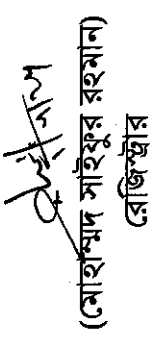 (মোহাম্মদ সাইফুর রহমান)
রেজিস্ট্রার